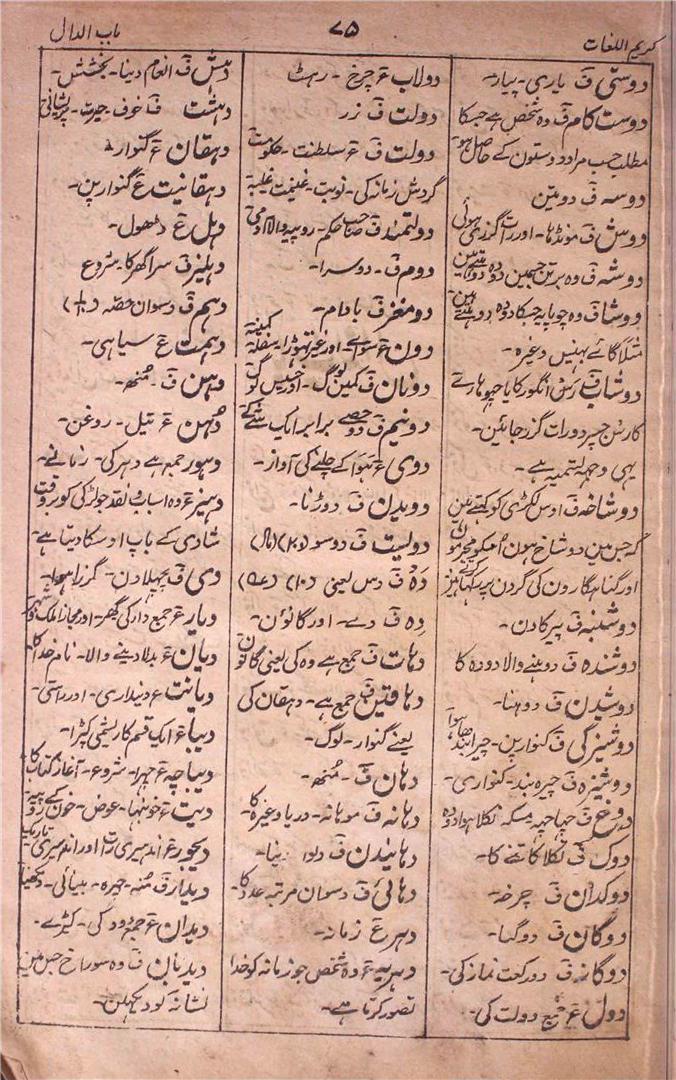 کریم اللغات
۷۵
باب الدال
دوستی ف یاری۔ پیار۔
دوست کام ف وہ شخص ہے جسکا
مطلب حسب مراد دوستون کے حاصل ہو
دوسہ ف دو تین
دوش ف مونڈھا۔ اور رات گزری ہوئی
دوشہ ف وہ برتن جسمین دودہ دوہتے ہین
دوشاف وہ چوپایہ جسکا دودہ دوہتے ہین
مثلاً گائے بہینس وغیرہ۔
دوشاب ف رس انگور کا یا چہوہارے
کا رس جسپر دو رات گزر جائین۔
یہی وجہ تسمیہ ہے۔
دوشاخہ ف اوس لکڑی کو کہتے ہین
کہ جس مین دو شاخ ہون
اور گناہگارون کی گردن پر رکھتے ہیز
دوشنبہ ف پیر کا دن۔
دوشندہ ف دوہنے والا دودہ کا
دوشیدن ف دوہنا۔
دوشیزگی ف کنوارپن۔ چیرا بندھا ہوا
دوشیزہ ف چیرہ بند۔ کنواری۔
دوغ ف چھاچھہ مسکہ نکلا ہوا دودہ
دوک ف تکلا کاتنے کا۔
دوکدان ف چرخہ۔
دوگان ف دوگنا۔
دوگانہ ف دو رکعت نماز کی۔
دول ع جمع دولت کی۔
دولاب ع چرخ۔ رہٹ
دولت ف زر
دولت ف ع سلطنت۔ حکومت
گردش زمانہ کی۔ نوبت۔ غنیمت غلبہ
دولتمند ف صاحب حکم۔ روپیہ والا آدمی
دوم ف۔ دوسرا۔
دومغز ف بادام۔
دون ع سوائے۔ اور غیر تھوڑا سفلہ کمینہ
دونان ف کمین لوگ۔ اور خسیس لوگ
دونیم ف دو حصے برابر ایک شے کے
دوی ع ہوا کے چلنے کی آواز۔
دویدن ف دوڑنا۔
دولیت ف دوسو (۲۰۰)
دہ ف دس یعنی (۱۰)
دہ ف دے۔ اور گانوٴن۔
دہات ف جمع ہے دہ کی یعنی گانوٴن
دہاقین ع جمع ہے۔ دہقان کی
یعنے گنوار۔ لوگ۔
دہان ف۔ مُنھ۔
دہانہ ف موہانہ۔ دریا وغیرہ کا
دہانیدن ف دلوا دینا۔
دہائی ف دسوان مرتبہ عدد کا
دہر ع زمانہ۔
دہریہ ع وہ شخص جو زمانہ کو خدا
تصور کرتا ہے۔
دہش ف انعام دینا۔ بخشش۔
دہشت ف خوف۔ حیرت۔ پریشانی
دہقان ع گنوار
دہقانیت ع گنوارپن۔
دہل ع ڈھول۔
دہلیز ف سرا گھر کا۔ شروع
دہم ف دسوان حصہ
دہمت ع سیاہی۔
دہن ف۔ مُنھ۔
دُہن ع تیل۔ روغن۔
دہور جمع ہے دہر کی۔ زمانے۔
دہیز ع وہ اسباب و نقد جو لڑکی کو بروقت
شادی کے باپ اوسکا دیتا ہے
دی ف پچھلا دن۔ گزرا ہوا۔
دیار ع جمع دار کی گھر۔ اور مجازاً ملک شہر
دیان ع بدلا دینے والا۔ نام خدا کا
دیانت ع دینداری۔ اور راستی۔
دیبا ع ایک قسم کا ریشمی کپڑا۔
دیباچہ ع چہرا۔ شروع۔ آغاز کتاب کا
دیت ع خونبہا۔ عوض۔ خون کے روپیہ
دیجور ع اندھیری رات اور اندھیری تاریک
دیدار ف مُنہ۔ چہرہ۔ بینائی۔ دیکھنا
دیدان ع جمع دود کی۔ کیڑے۔
دیدبان ف وہ سوراخ جس مین
نشانہ کو دیکھین۔